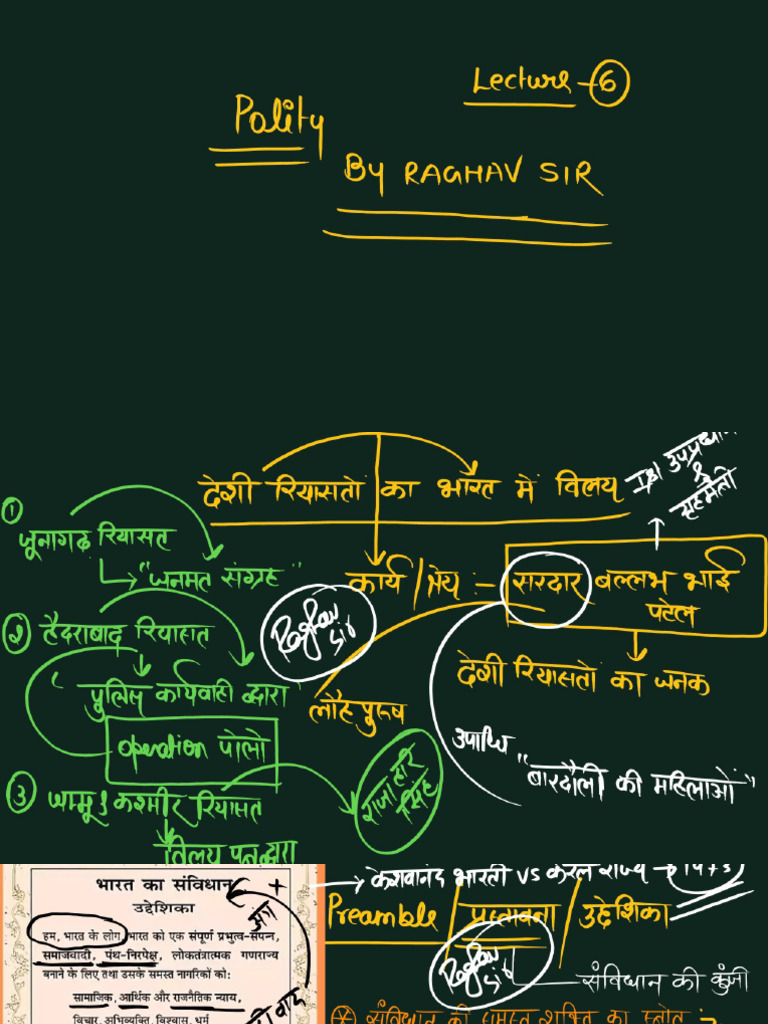 Lecture - 6
Polity
By RAGHAV SIR
देशी रियासतों का भारत में विलय
1st उपप्रधान
&
गृहमंत्री
①
जूनागढ़ रियासत
"जनमत संग्रह"
कार्य / श्रेय :- सरदार बल्लभ भाई
पटेल
② हैदराबाद रियासत
Raghav
Sir
देशी रियासतों का जनक
'पुलिस कार्यवाही द्वारा'
लौह पुरुष
operation पोलो
उपाधि
"बारदौली की महिलाओं"
③ जम्मू & कश्मीर रियासत
राजा हरि
सिंह
विलय पत्र द्वारा
भारत का संविधान
उद्देशिका
हम, भारत के लोग, भारत को एक संपूर्ण प्रभुत्व-संपन्न,
समाजवादी, पंथ-निरपेक्ष, लोकतंत्रात्मक गणराज्य
बनाने के लिए तथा उसके समस्त नागरिकों को:
सामाजिक, आर्थिक और राजनैतिक न्याय,
विचार, अभिव्यक्ति, विश्वास, धर्म
केशवानंद भारती VS केरल राज्य
Preamble / प्रस्तावना / उद्देशिका
Raghav
Sir
संविधान की कुंजी
संविधान की समस्त शक्ति का स्त्रोत :-